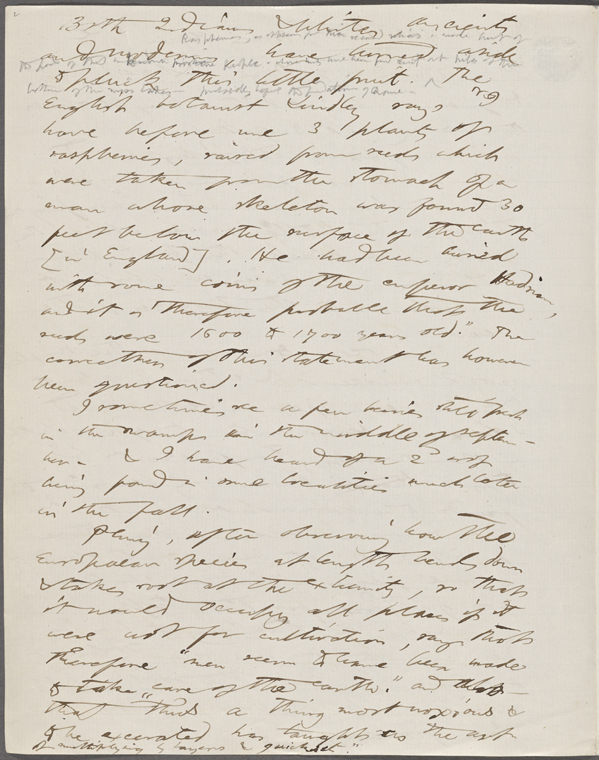 Both Indians & whites, ancients
and moderns have turned aside
to pluck this little fruit. The
English botanist Lindley says "I
have before me 3 plants of
raspberries, raised from seeds which
were taken from the stomach of a
man whose skeleton was found 30
feet below the surface of the earth
[in England]. He had been buried
with some coins of the emperor Hadrian,
and it is therefore probable that the
seeds were 1600 to 1700 years old." The
correctness of this statement has however
been questioned.
I sometimes see a few berries still fresh
in the swamps in the middle of Septem-
ber - & I have heard of a 2d crop
being found in some localities much later
in the fall.
Pliny, after observing how the
European species at length bends down
& takes root at the extremity, so that
it would occupy all places if it
were not for cultivation, says that
therefore "men seem to have been made
to take care of the earth." and
that thus a thing most noxious &
to be execrated has taught us the art
of multiplying by layers & quickset."